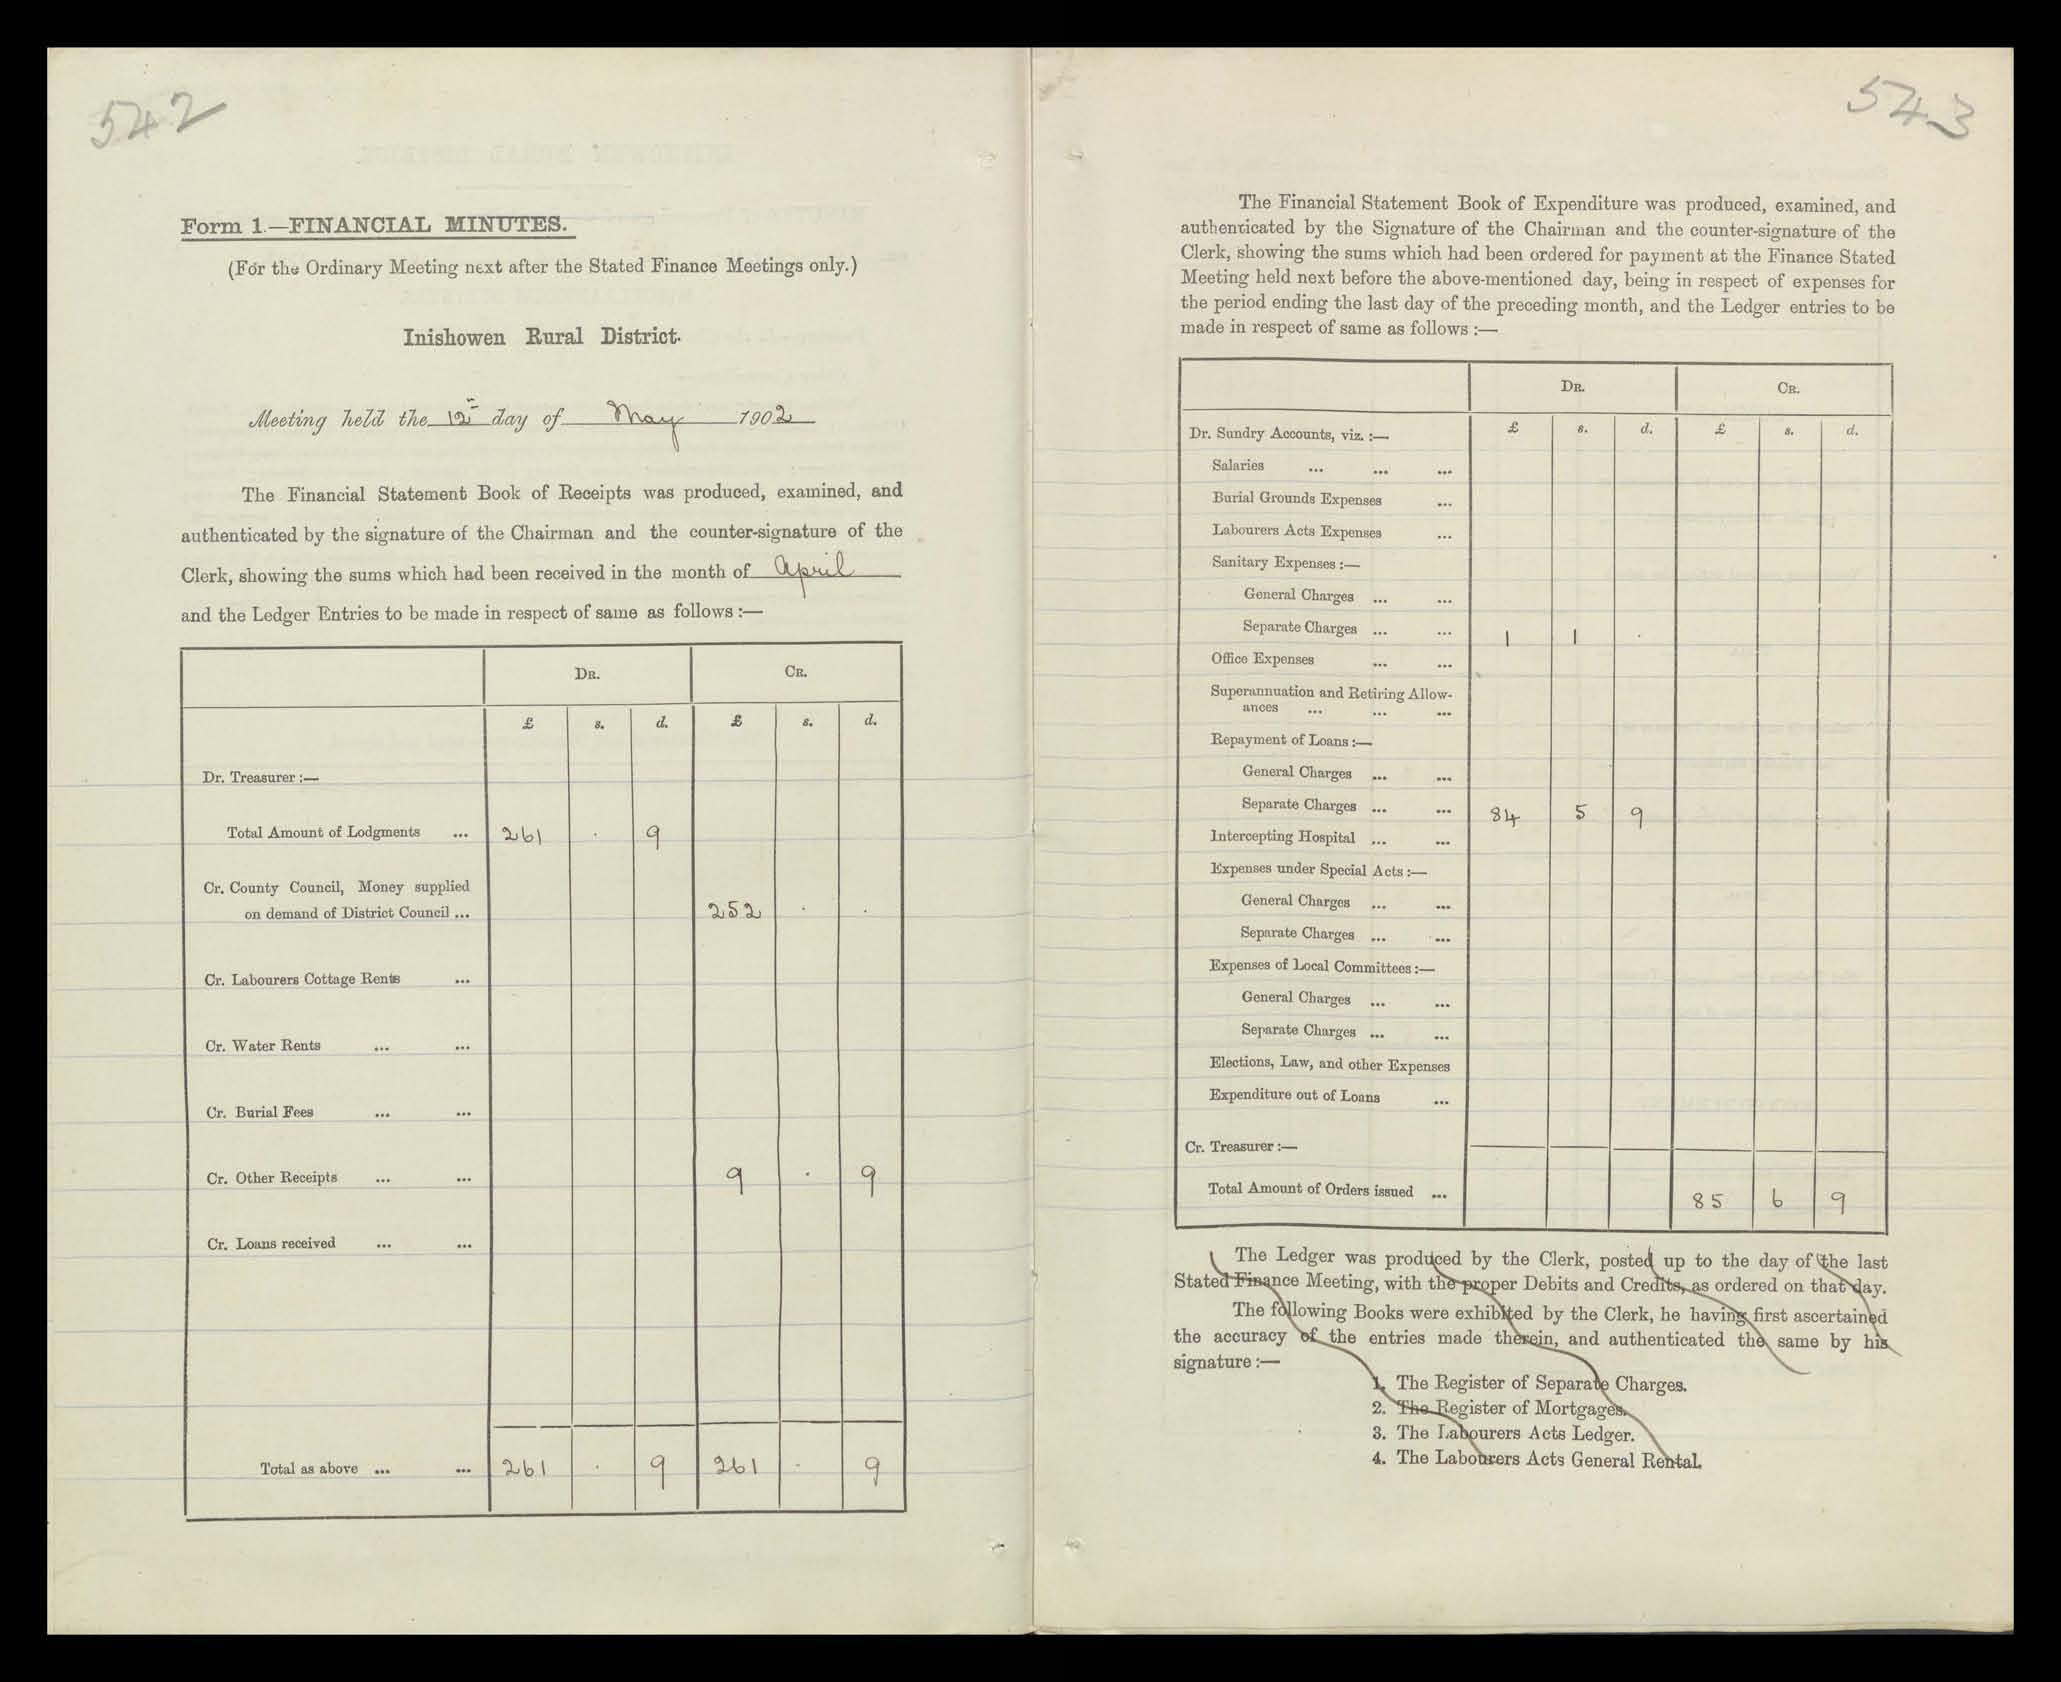 542
Form 1.—FINANCIAL MINUTES.
(For the Ordinary Meeting next after the Stated Finance Meetings only.)
Inishowen Rural District.
Meeting held the 12th day of May 1902
The Financial Statement Book of Receipts was produced, examined, and
authenticated by the signature of the Chairman and the counter-signature of the
Clerk, showing the sums which had been received in the month of April
and the Ledger Entries to be made in respect of same as follows :—
DR. CR.
£ s. d. £ s. d.
Dr. Treasurer :—
Total Amount of Lodgments ... 261 . 9
Cr. County Council, Money supplied
on demand of District Council ... 252 . .
Cr. Labourers Cottage Rents ...
Cr. Water Rents ... ...
Cr. Burial Fees ... ...
Cr. Other Receipts ... ... 9 . 9
Cr. Loans received ... ...
Total as above ... ... 261 . 9 261 . 9
543
The Financial Statement Book of Expenditure was produced, examined, and
authenticated by the Signature of the Chairman and the counter-signature of the
Clerk, showing the sums which had been ordered for payment at the Finance Stated
Meeting held next before the above-mentioned day, being in respect of expenses for
the period ending the last day of the preceding month, and the Ledger entries to be
made in respect of same as follows :—
DR. CR.
Dr. Sundry Accounts, viz. :— £ s. d. £ s. d.
Salaries ... ... ...
Burial Grounds Expenses ...
Labourers Acts Expenses ...
Sanitary Expenses :—
General Charges ... ...
Separate Charges ... ... 1 1 .
Office Expenses ... ...
Superannuation and Retiring Allow-
ances ... ... ...
Repayment of Loans :—
General Charges ... ...
Separate Charges ... ... 84 5 9
Intercepting Hospital ... ...
Expenses under Special Acts :—
General Charges ... ...
Separate Charges ... ...
Expenses of Local Committees :—
General Charges ... ...
Separate Charges ... ...
Elections, Law, and other Expenses
Expenditure out of Loans ...
Cr. Treasurer :—
Total Amount of Orders issued ... 85 6 9
The Ledger was produced by the Clerk, posted up to the day of the last
Stated Finance Meeting, with the proper Debits and Credits, as ordered on that day.
The following Books were exhibited by the Clerk, he having first ascertained
the accuracy of the entries made therein, and authenticated the same by his
signature :—
1. The Register of Separate Charges.
2. The Register of Mortgages.
3. The Labourers Acts Ledger.
4. The Labourers Acts General Rental.